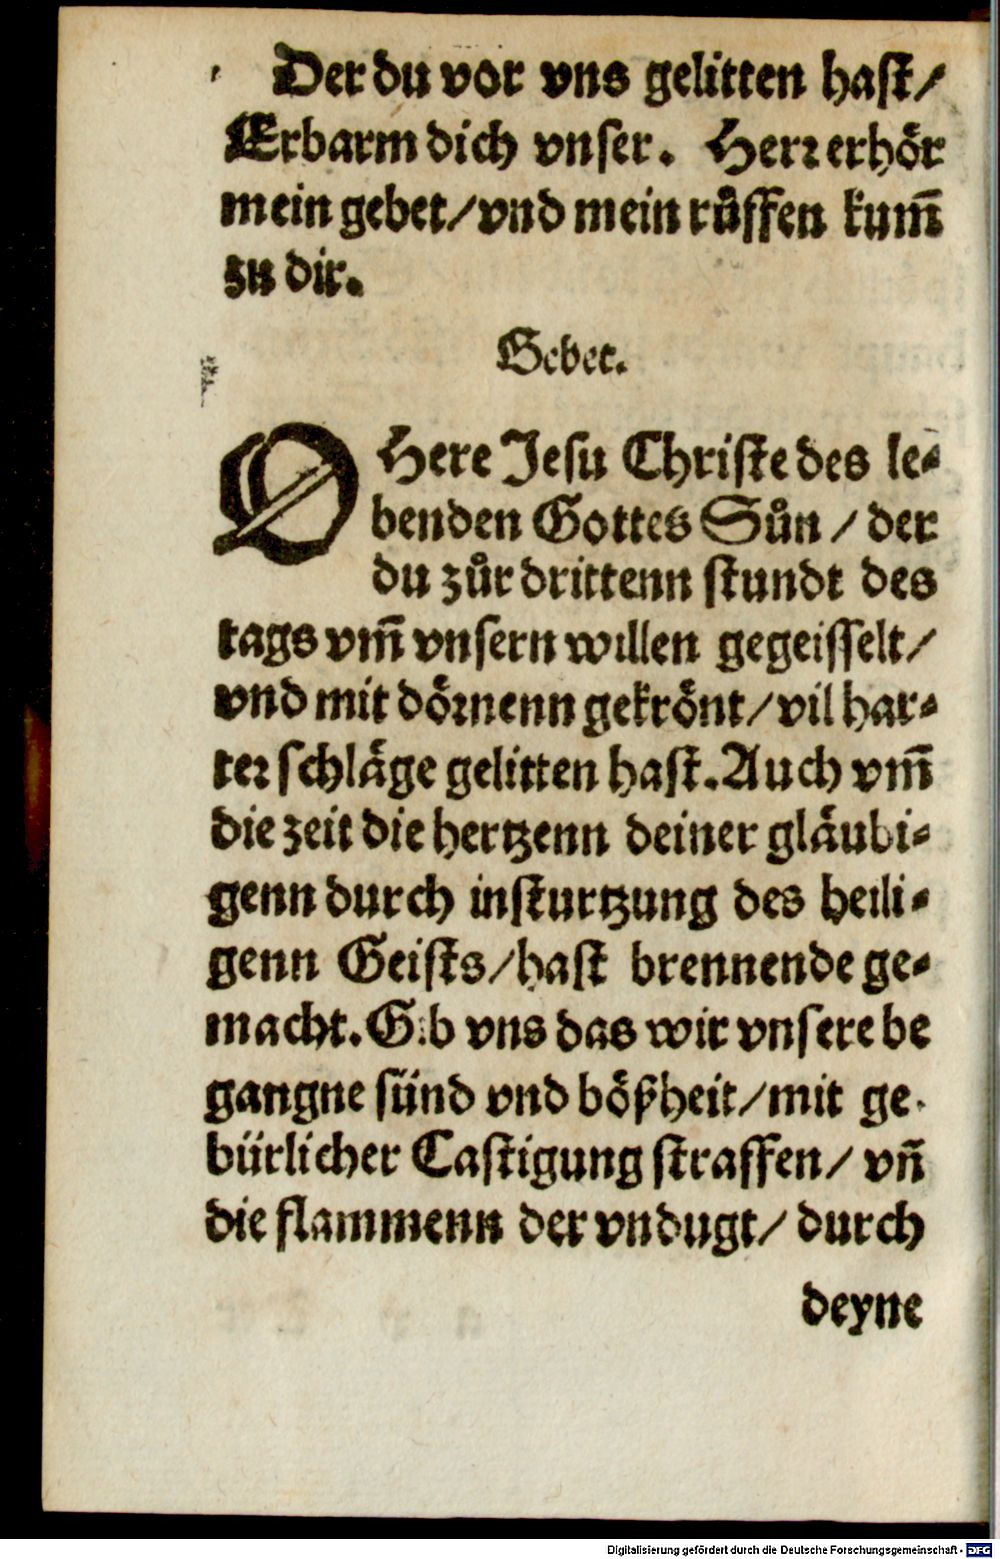 Der du vor vns gelitten haſt/
Erbarm dich vnſer. Herꝛ erhoͤr
mein gebet/vnd mein ruͦffen kum̄
zu dir.
Gebet.
O Here Jesu Chriſte des le⸗
benden Gottes Suͦn / der
du zuͦr drittenn ſtundt des
tags vm̄ vnſern willen gegeiſſelt/
vnd mit doͤꝛnenn gekroͤnt/vil har⸗
teꝛ ſchlaͤge gelitten haſt. Auch vm̄
die zeit die hertzenn deiner glaͤubi⸗
genn durch inſturtzung des heili⸗
genn Geiſts/haſt brennende ge⸗
macht. Gib vns das wir vnſere be
gangne ſünd vnd boͤßheit/mit ge⸗
bürlicher Caſtigung ſtraffen/ vn̄
die flammenn der vndugt/ durch
deyne
Digitalisierung gefördert durch die Deutsche Forschungsgemeinschaft - DFG